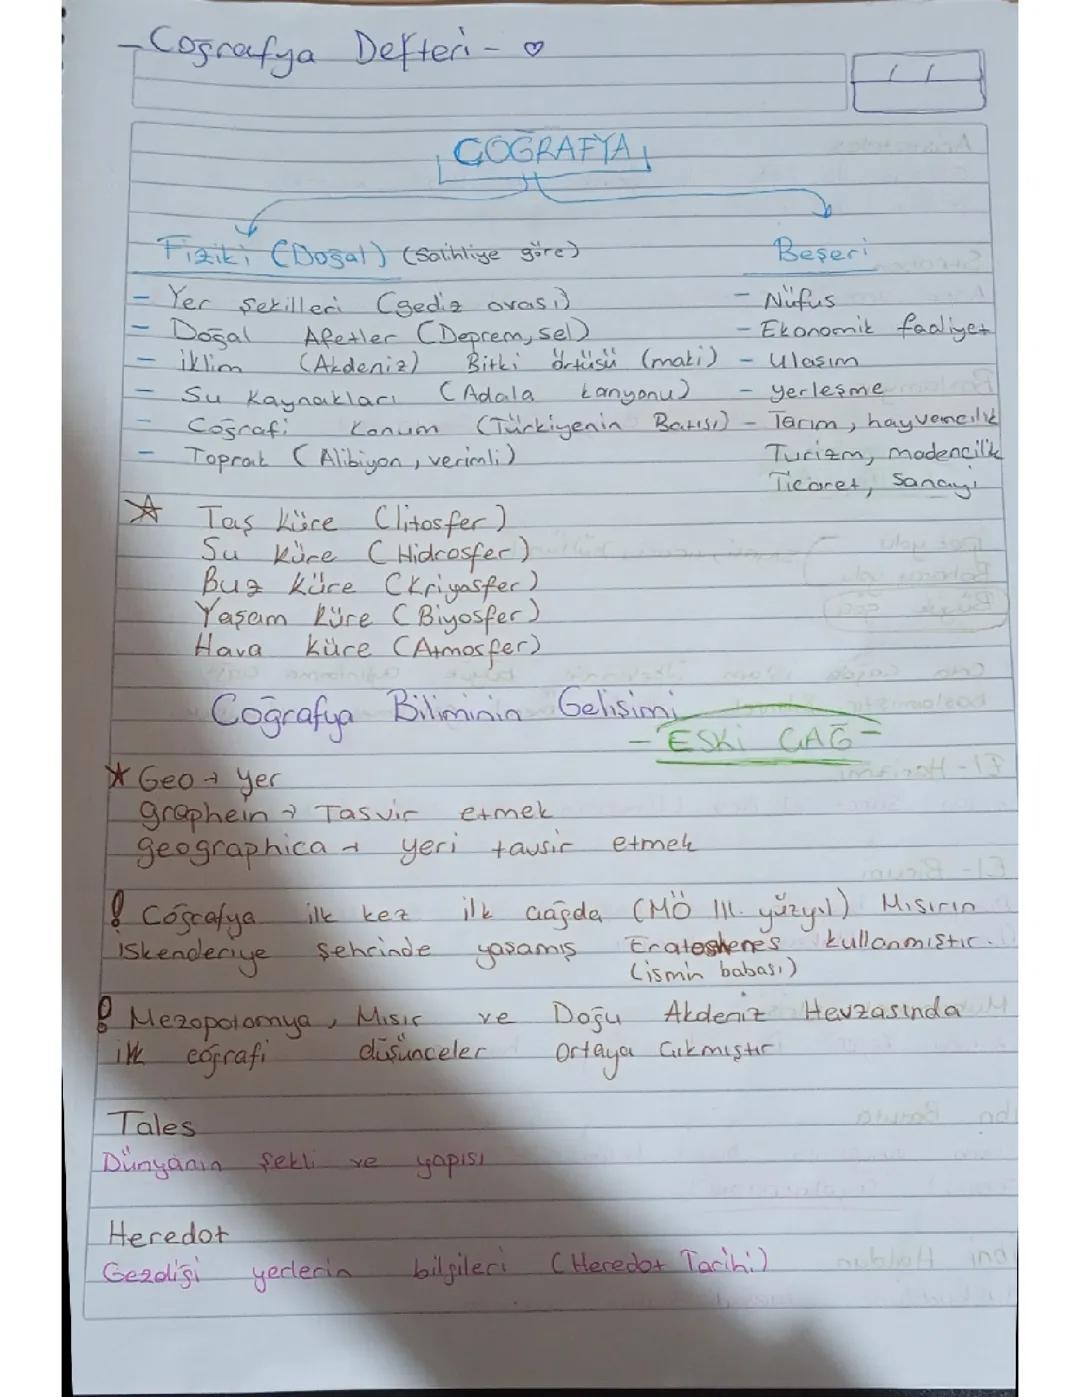 - Coğrafya Defteri - ♡
/ /
COĞRAFYA
Fiziki (Doğal) (Salihliye göre)
Beşeri
- Yer şekilleri (gediz ovası)
- Nüfus
- Doğal Afetler (Deprem, sel)
- Ekonomik faaliyet
- iklim (Akdeniz) Bitki örtüsü (maki)
- Ulaşım
- Su Kaynakları (Adala kanyonu)
- yerleşme
- Coğrafi Konum (Türkiyenin Batısı)
- Tarım, hayvancılık
- Toprak (Alibiyon, verimli)
Turizm, madencilik
Ticaret, Sanayi
☆ Taş küre (litosfer)
Su küre (Hidrosfer)
Buz küre (Kriyosfer)
Yaşam küre (Biyosfer)
Hava küre (Atmosfer)
Coğrafya Biliminin Gelişimi
- ESKi ÇAĞ -
★ Geo → yer
graphein → Tasvir etmek
geographica → yeri tavsir etmek
! Coğrafya ilk kez ilk çağda (MÖ III. yüzyıl) Mısırın
iskenderiye şehrinde yaşamış Eratoshenes kullanmıştır.
(ismin babası)
! Mezopotamya, Mısır ve Doğu Akdeniz Havzasında
ilk coğrafi düşünceler ortaya çıkmıştır
Tales
Dünyanın şekli ve yapısı
Heredot
Gezdiği yerlerin bilgileri (Heredot Tarihi)